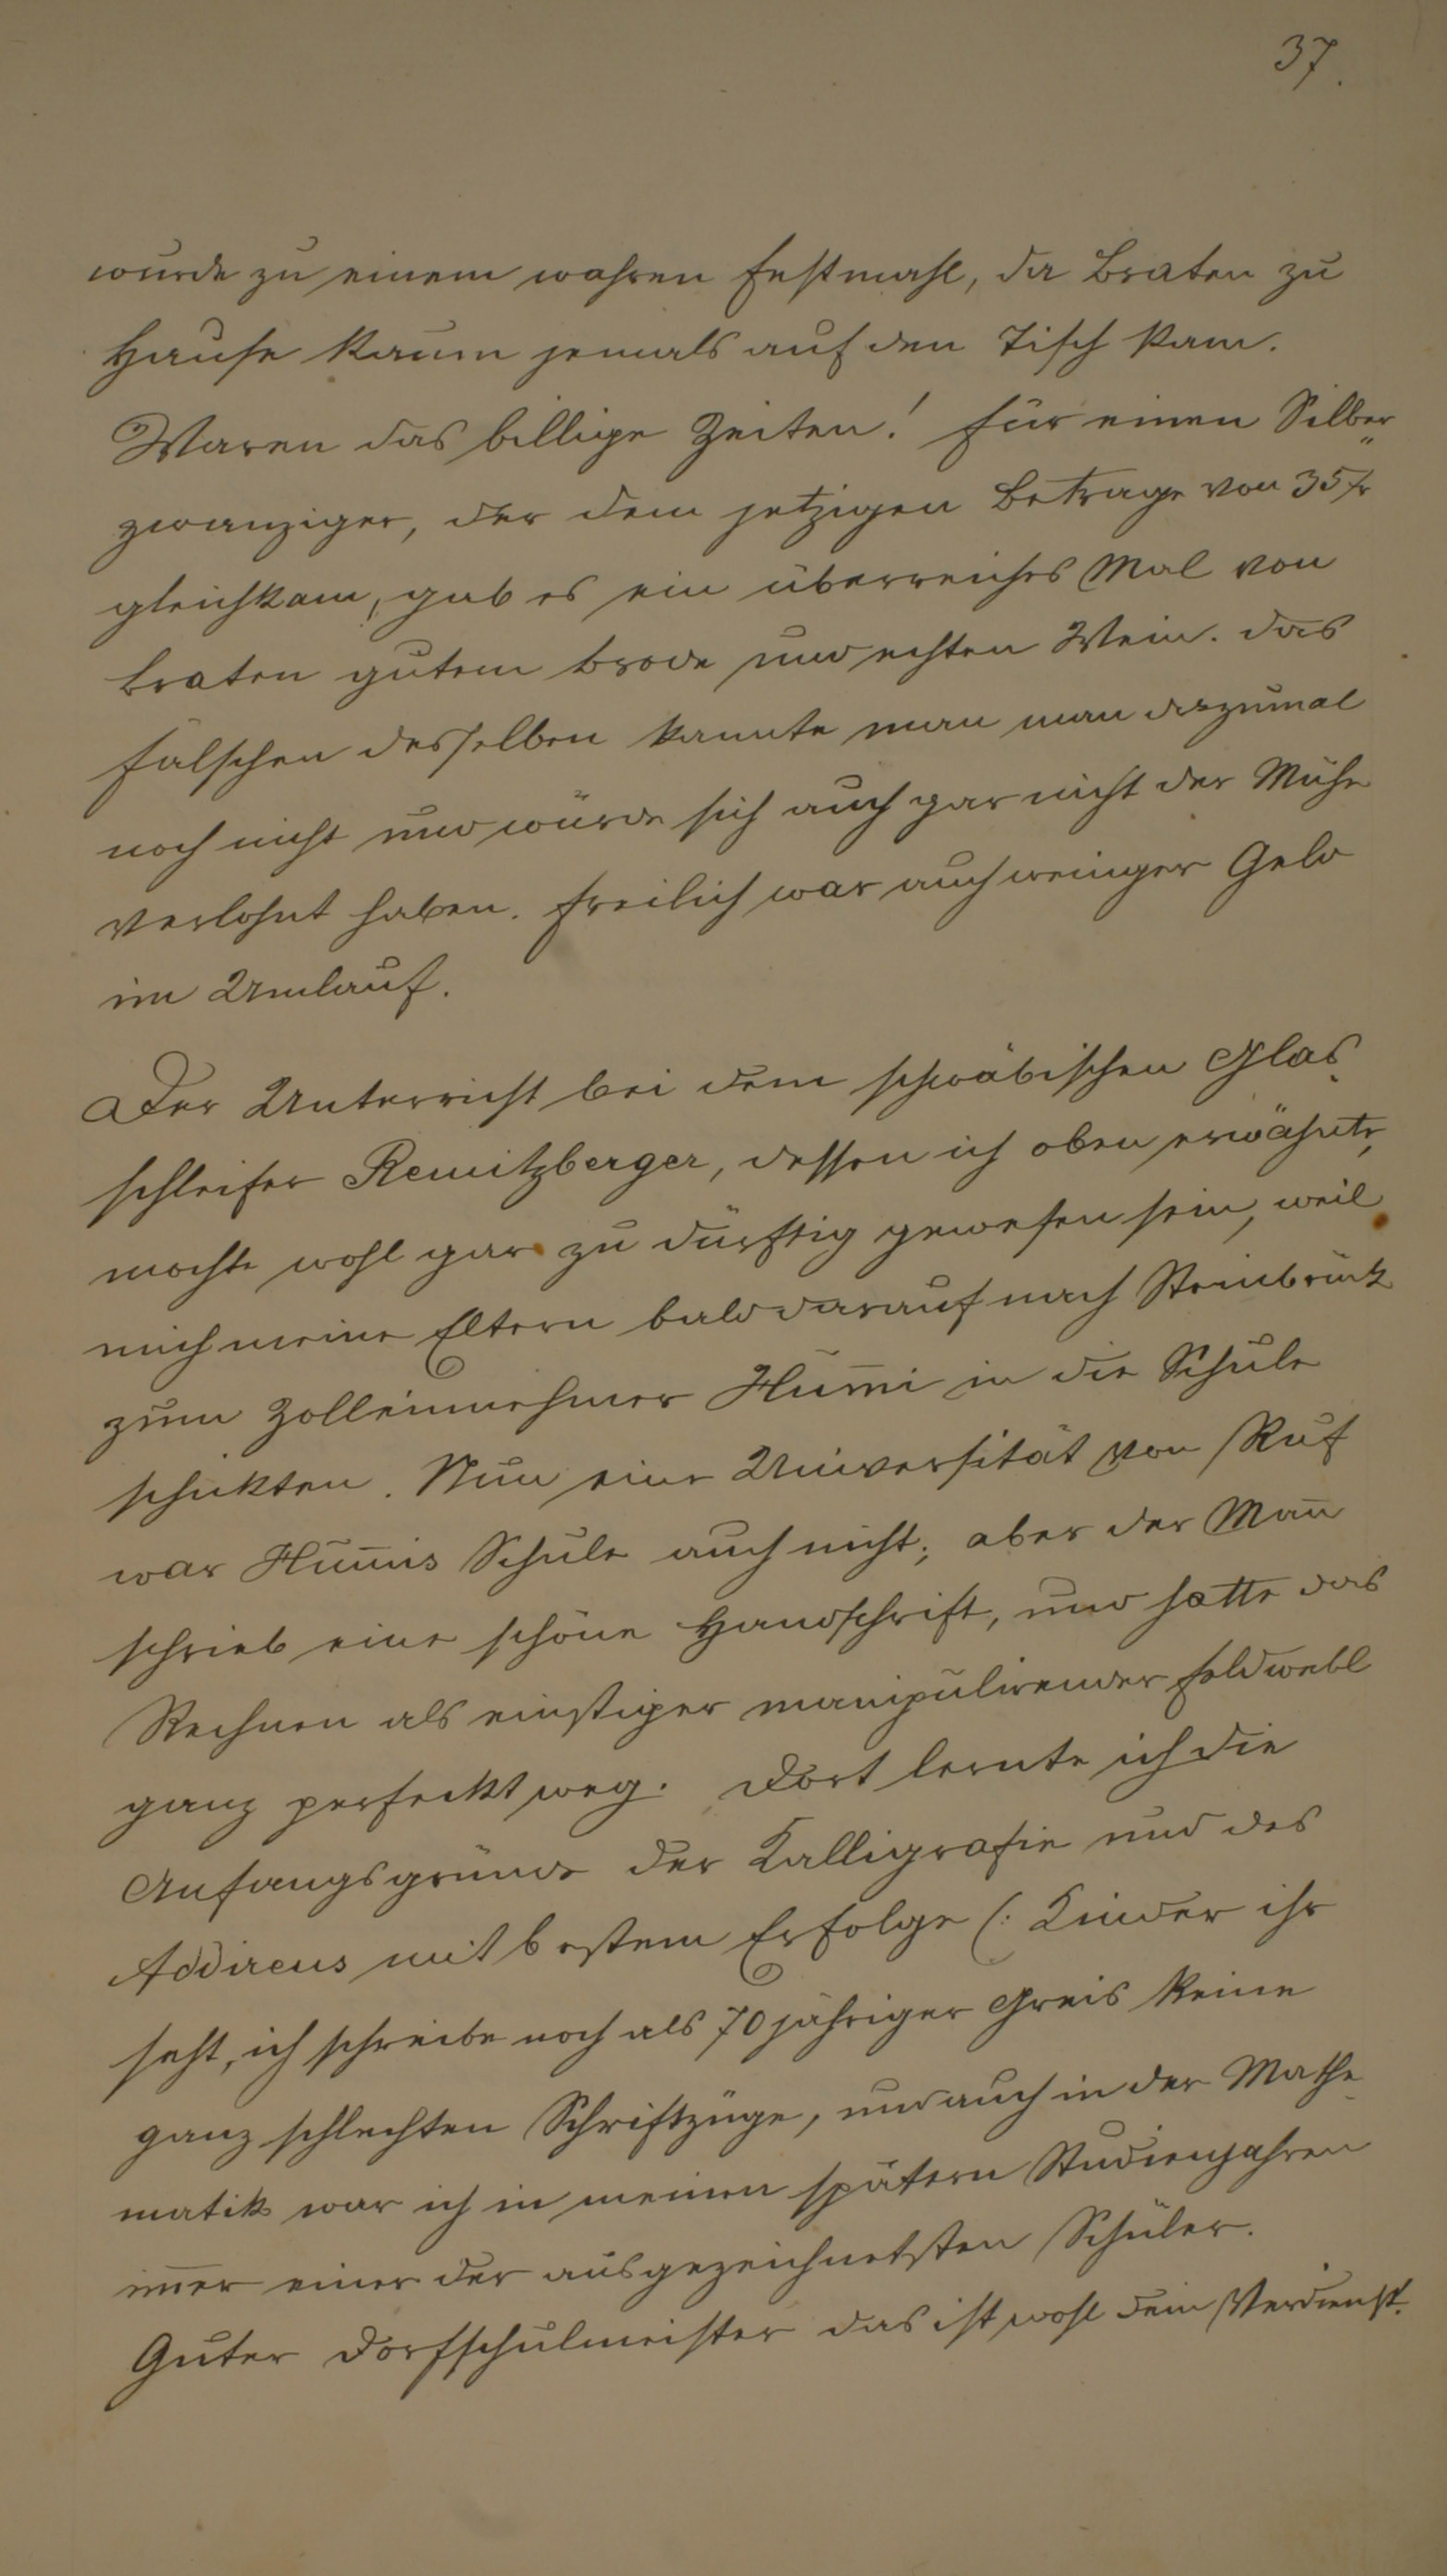 37.
wurde zu einem wahren Festmahl, da Braten zu
Hause kaum jemals auf den Tisch kam.
Waren das billige Zeiten! Für einen Silber„
zwanziger, der dem jetzigen Betrage von 35 kr
gleichkam, gab es ein überreiches Mal von
Braten gutem Brode und echten Wein. Das
Fälschen desselben kannte man man dazumal
noch nicht und würde sich auch gar nicht der Mühe
verlohnt haben. Freilich war auch weniger Geld
im Umlauf.
Der Unterricht bei dem schwäbischen Glas-
schleifer Remitzberger, dessen ich oben erwähnte,
mochte wohl gar zu dürftig gewesen sein, weil
mich meine Eltern bald darauf nach Steinbrück
zum Zolleinnehmer Hum̄i in die Schule
schickten. Nun eine Universität von Ruf
war Hum̄is Schule auch nicht; aber der Man̄
schrieb eine schöne Handschrift, und hatte das
Rechnen als einstiger manipulirender Feldwebl
ganz perfeckt weg. Dort lernte ich die
Anfangsgründe der Kalligrafie und des
Addirens mit bestem Erfolge (: Kinder ihr
seht, ich schreibe noch als 70 jähriger Greis keine
ganz schlechten Schriftzüge, und auch in der Mathe-
matik war ich in meinen spätern Studienjahren
im̄er einer der ausgezeichnetsten Schüler.
Guter Dorfschulmeister das ist wohl dein Verdienst.